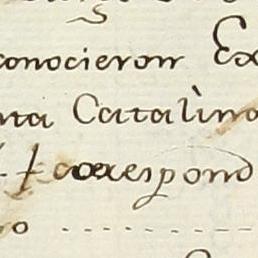 conocieron Ex
nta Catalina
correspond
o ..........